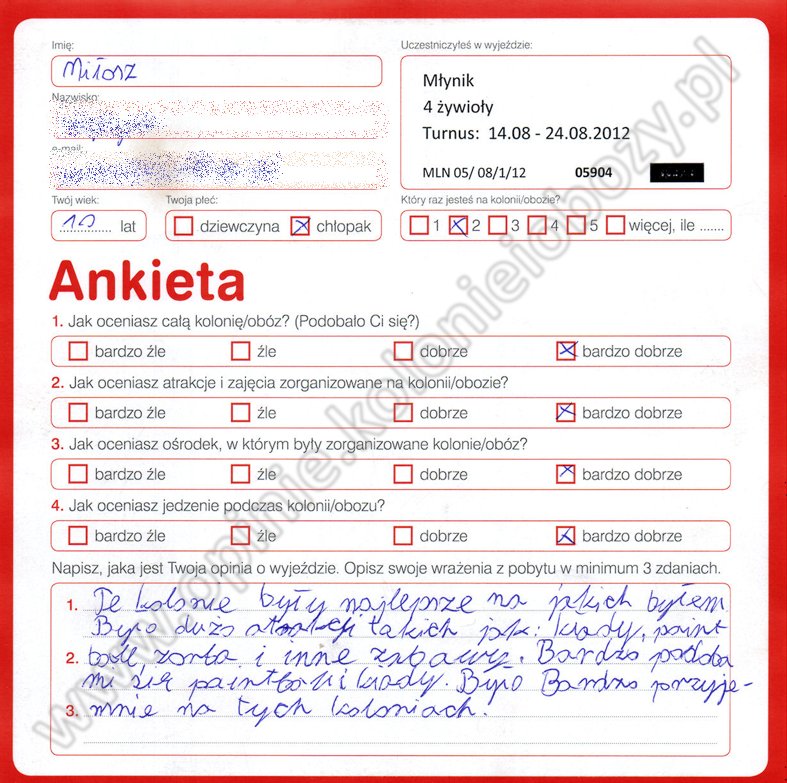 Imię:
Miłosz
Nazwisko:
e-mail:
Uczestniczyłeś w wyjeździe:
Młynik
4 żywioły
Turnus: 14.08 - 24.08.2012
MLN 05/ 08/1/12 05904
Twój wiek:
10 lat
Twoja płeć:
dziewczyna chłopak
Który raz jesteś na kolonii/obozie?
1 2 3 4 5 więcej, ile .......
Ankieta
1. Jak oceniasz całą kolonię/obóz? (Podobało Ci się?)
bardzo źle źle dobrze bardzo dobrze
2. Jak oceniasz atrakcje i zajęcia zorganizowane na kolonii/obozie?
bardzo źle źle dobrze bardzo dobrze
3. Jak oceniasz ośrodek, w którym były zorganizowane kolonie/obóz?
bardzo źle źle dobrze bardzo dobrze
4. Jak oceniasz jedzenie podczas kolonii/obozu?
bardzo źle źle dobrze bardzo dobrze
Napisz, jaka jest Twoja opinia o wyjeździe. Opisz swoje wrażenia z pobytu w minimum 3 zdaniach.
1. Te kolonie były najlepsze na jakich byłem
Było dużo atrakcji takich jak: kłady, paint
2. ball, zorba i inne zabawy. Bardzo podoba
mi się paintball i kłady. Było Bardzo przyje-
3. mnie na tych koloniach.
www.opinie.kolonieiobozy.pl